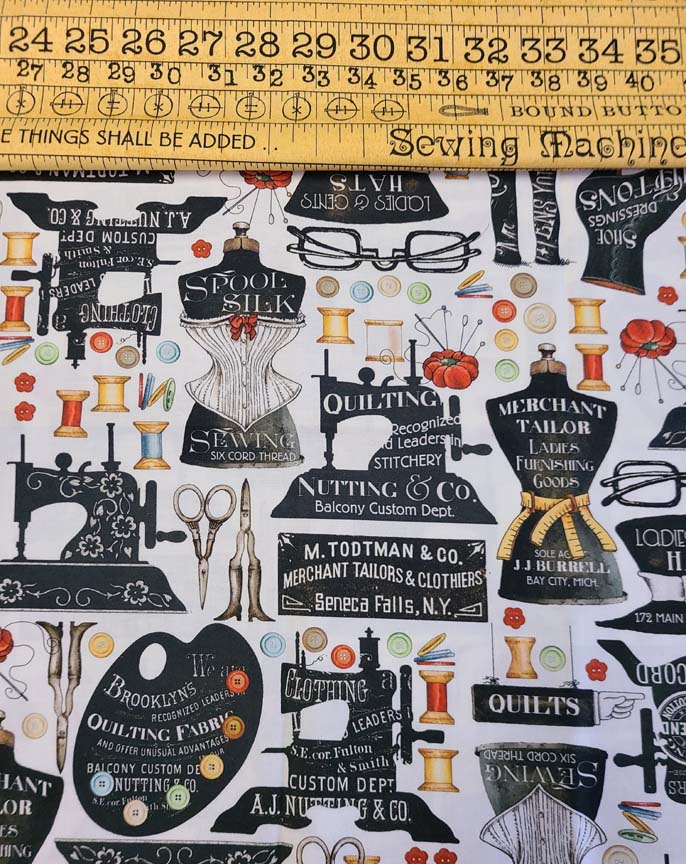 24 25 26 27 28 29 30 31 32 33 34 35
27 28 29 30 31 32 33 34 35 36 37 38 39 40
BOUND BUTTO
E THINGS SHALL BE ADDED . .
Sewing Machine
HATS
LADIES & GENTS
SHOE
DRESSINGS
A.J. NUTTING & CO.
CUSTOM DEPT
& Smith
S.E. cor. Fulton
LEADERS
CLOTHING
SPOOL
SILK
SEWING
SIX CORD THREAD
QUILTING
Recognized
d Leaders in
STITCHERY
NUTTING & CO.
Balcony Custom Dept.
MERCHANT
TAILOR
LADIES
FURNISHING
GOODS
SOLE AG
J.J BURRELL
BAY CITY, MICH.
M. TODTMAN & CO.
MERCHANT TAILORS & CLOTHIERS
Seneca Falls, N.Y.
LADIE
H
172 MAIN
We are
BROOKLYN'S
RECOGNIZED LEADERS
QUILTING FABRIC
AND OFFER UNUSUAL ADVANTAGES
BALCONY CUSTOM DE
NUTTING
S.E. cor. Fulton
CLOTHING
LEADERS
S.E. cor. Fulton
& Smith
CUSTOM DEPT
A.J. NUTTING & CO.
QUILTS
SIX CORD THREAD
SEWING
CORD
HANT
LOR
ES
HING